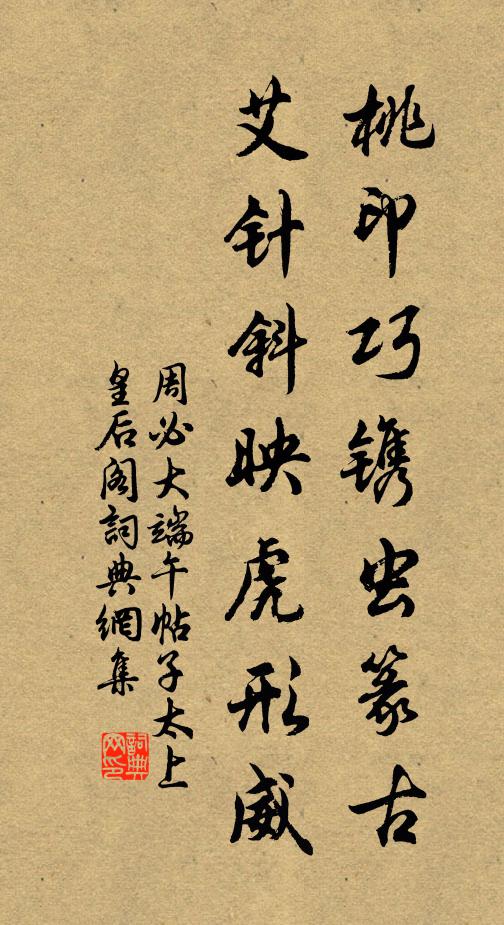 桃印巧镌虫篆古
艾针斜映虎形威
周必大端午帖子太上
皇后阁詞典網集
詞典网印